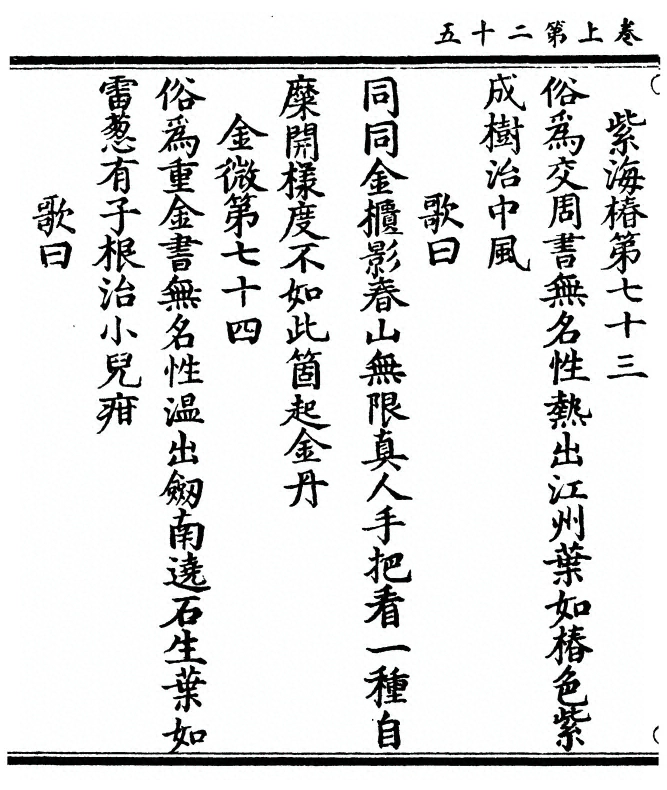 卷上第二十五
紫海椿第七十三
俗爲交周書無名性熱出江州葉如椿色紫
成樹治中風
歌曰
同同金櫃影春山無限真人手把看一種自
糜開樣度不如此箇起金丹
金微第七十四
俗爲重金書無名性温出劒南遶石生葉如
雷葱有子根治小兒疳
歌曰